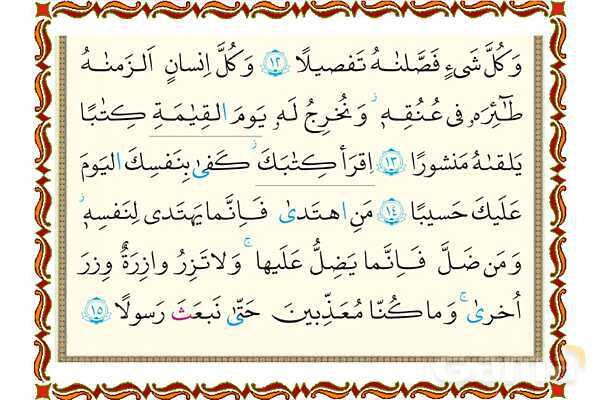 وَ كُلَّ شَیءٍ فَصَّلنٰهُ تَفصیلًا ﴿۱۲﴾ وَ كُلَّ اِنسانٍ اَلزَمنٰهُ
طٰٓئِرَهٗ فی عُنُقِهٖ ۖ وَ نُخرِجُ لَهٗ یَومَ القِیٰمَةِ كِتٰبًا
یَلقىٰهُ مَنشورًا ﴿۱۳﴾ اِقرَأ كِتٰبَكَ ۖ كَفىٰ بِنَفسِكَ الیَومَ
عَلَیكَ حَسیبًا ﴿۱۴﴾ مَنِ اهتَدىٰ فَاِنَّما یَهتَدی لِنَفسِهٖ ۖ
وَ مَن ضَلَّ فَاِنَّما یَضِلُّ عَلَیها ۚ وَ لا تَزِرُ وازِرَةٌ وِزرَ
اُخرىٰ ۗ وَ ما كُنّا مُعَذِّبینَ حَتّىٰ نَبعَثَ رَسولًا ﴿۱۵﴾